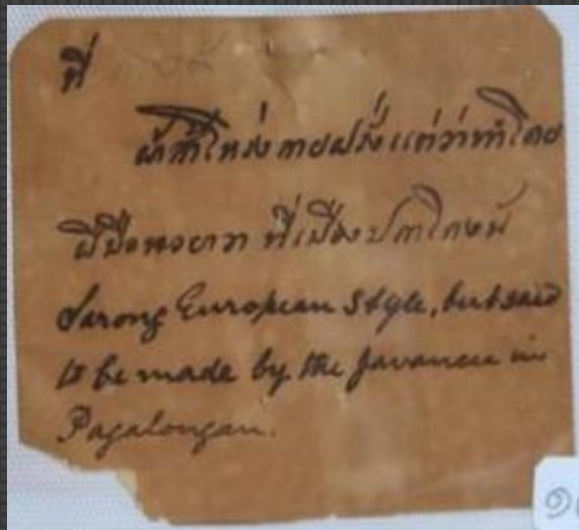 ที่
ผ้าโสร่งลายฝรั่งแต่ว่าทำโดย
ฝีมือพวกยาวา ที่เมืองปกาโลงัน
Sarong European style, but said
to be made by the Javanese in
Pagalongan.